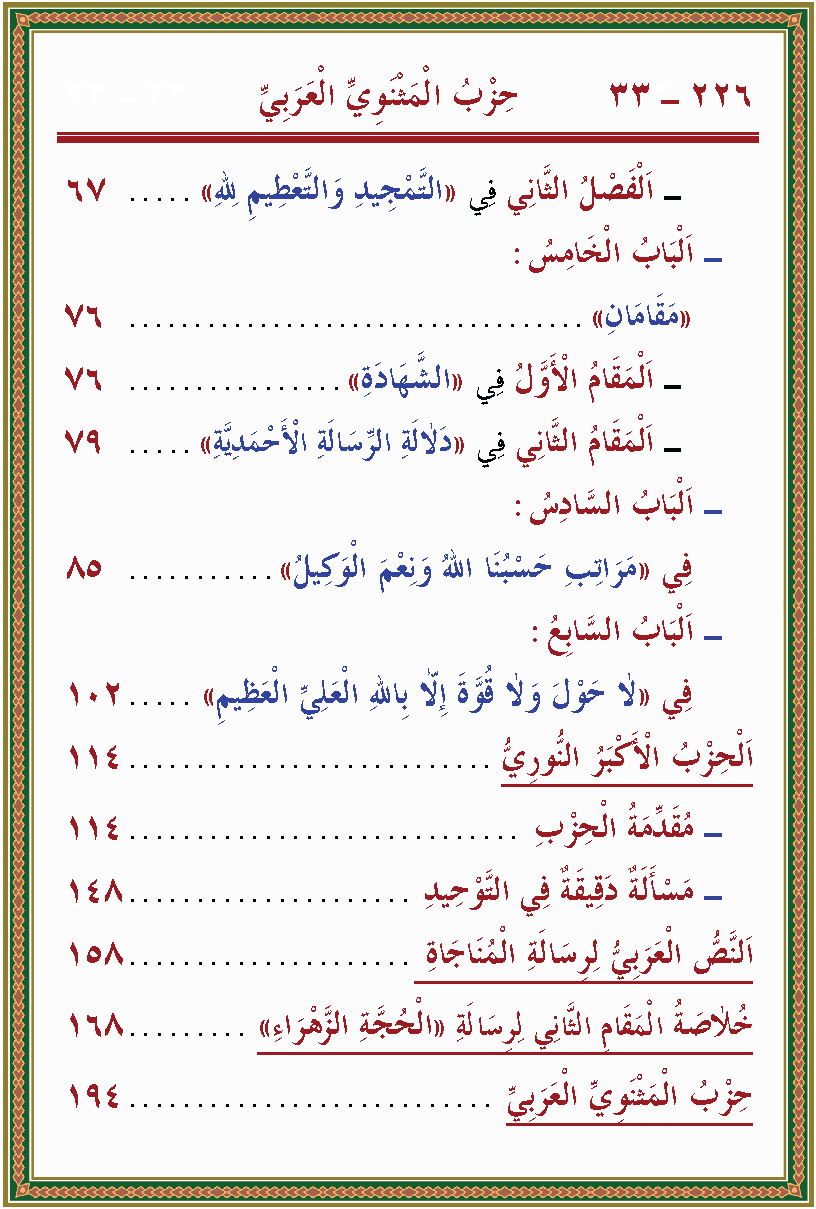 ٢٢٦ ـ ٣٣ حِزْبُ الْمَثْنَوِيِّ الْعَرَبِيِّ
ـ اَلْفَصْلُ الثَّانِي فِي «التَّمْجِيدِ وَالتَّعْظِيمِ لِلّٰهِ» ..... ٦٧
ـ اَلْبَابُ الْخَامِسُ :
«مَقَامَانِ» ................................... ٧٦
ـ اَلْمَقَامُ الْأَوَّلُ فِي «الشَّهَادَةِ» ................ ٧٦
ـ اَلْمَقَامُ الثَّانِي فِي «دَلَالَةِ الرِّسَالَةِ الْأَحْمَدِيَّةِ» ..... ٧٩
ـ اَلْبَابُ السَّادِسُ :
فِي «مَرَاتِبِ حَسْبُنَا اللّٰهُ وَنِعْمَ الْوَكِيلُ» ........... ٨٥
ـ اَلْبَابُ السَّابِعُ :
فِي «لَا حَوْلَ وَلَا قُوَّةَ إِلَّا بِاللّٰهِ الْعَلِيِّ الْعَظِيمِ» ..... ١٠٢
اَلْحِزْبُ الْأَكْبَرُ النُّورِيُّ ............................ ١١٤
ـ مُقَدِّمَةُ الْحِزْبِ .............................. ١١٤
ـ مَسْأَلَةٌ دَقِيقَةٌ فِي التَّوْحِيدِ ...................... ١٤٨
اَلنَّصُّ الْعَرَبِيُّ لِرِسَالَةِ الْمُنَاجَاةِ ...................... ١٥٨
خُلَاصَةُ الْمَقَامِ الثَّانِي لِرِسَالَةِ «الْحُجَّةِ الزَّهْرَاءِ» ......... ١٦٨
حِزْبُ الْمَثْنَوِيِّ الْعَرَبِيِّ ............................ ١٩٤